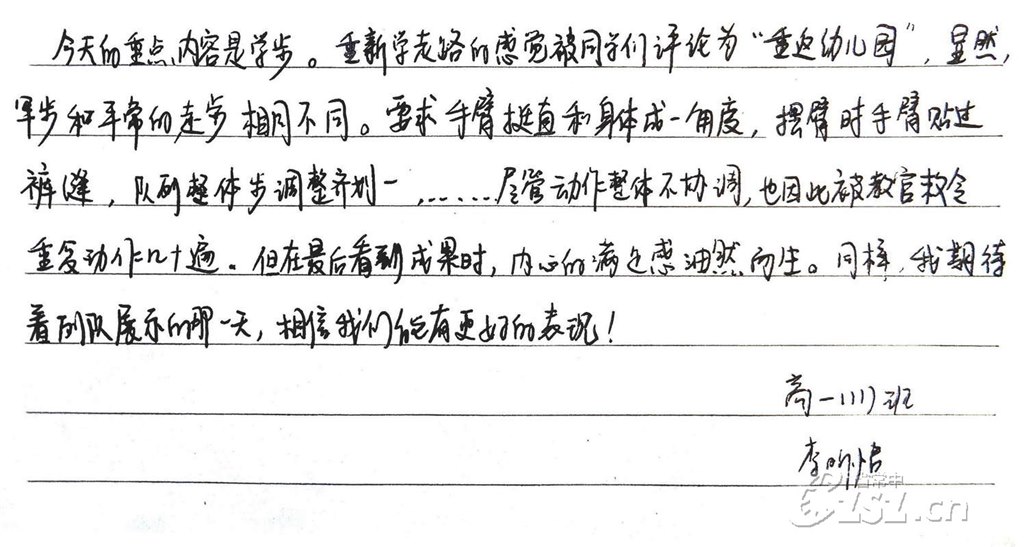 今天的重点内容是学步。重新学走路的感觉被同学们评论为“重返幼儿园”，显然，
军步和平常的走步相同不同。要求手臂挺直和身体成一角度，摆臂时手臂贴过
裤缝，队列整体步调整齐划一，……尽管动作整体不协调，也因此被教官教令
重复动作几十遍。但在最后看到成果时，内心的满足感油然而生。同样，我期待
着列队展示的那一天，相信我们能有更好的表现！
高一(1)班
李昕怡
省常中
ZSZ.cn